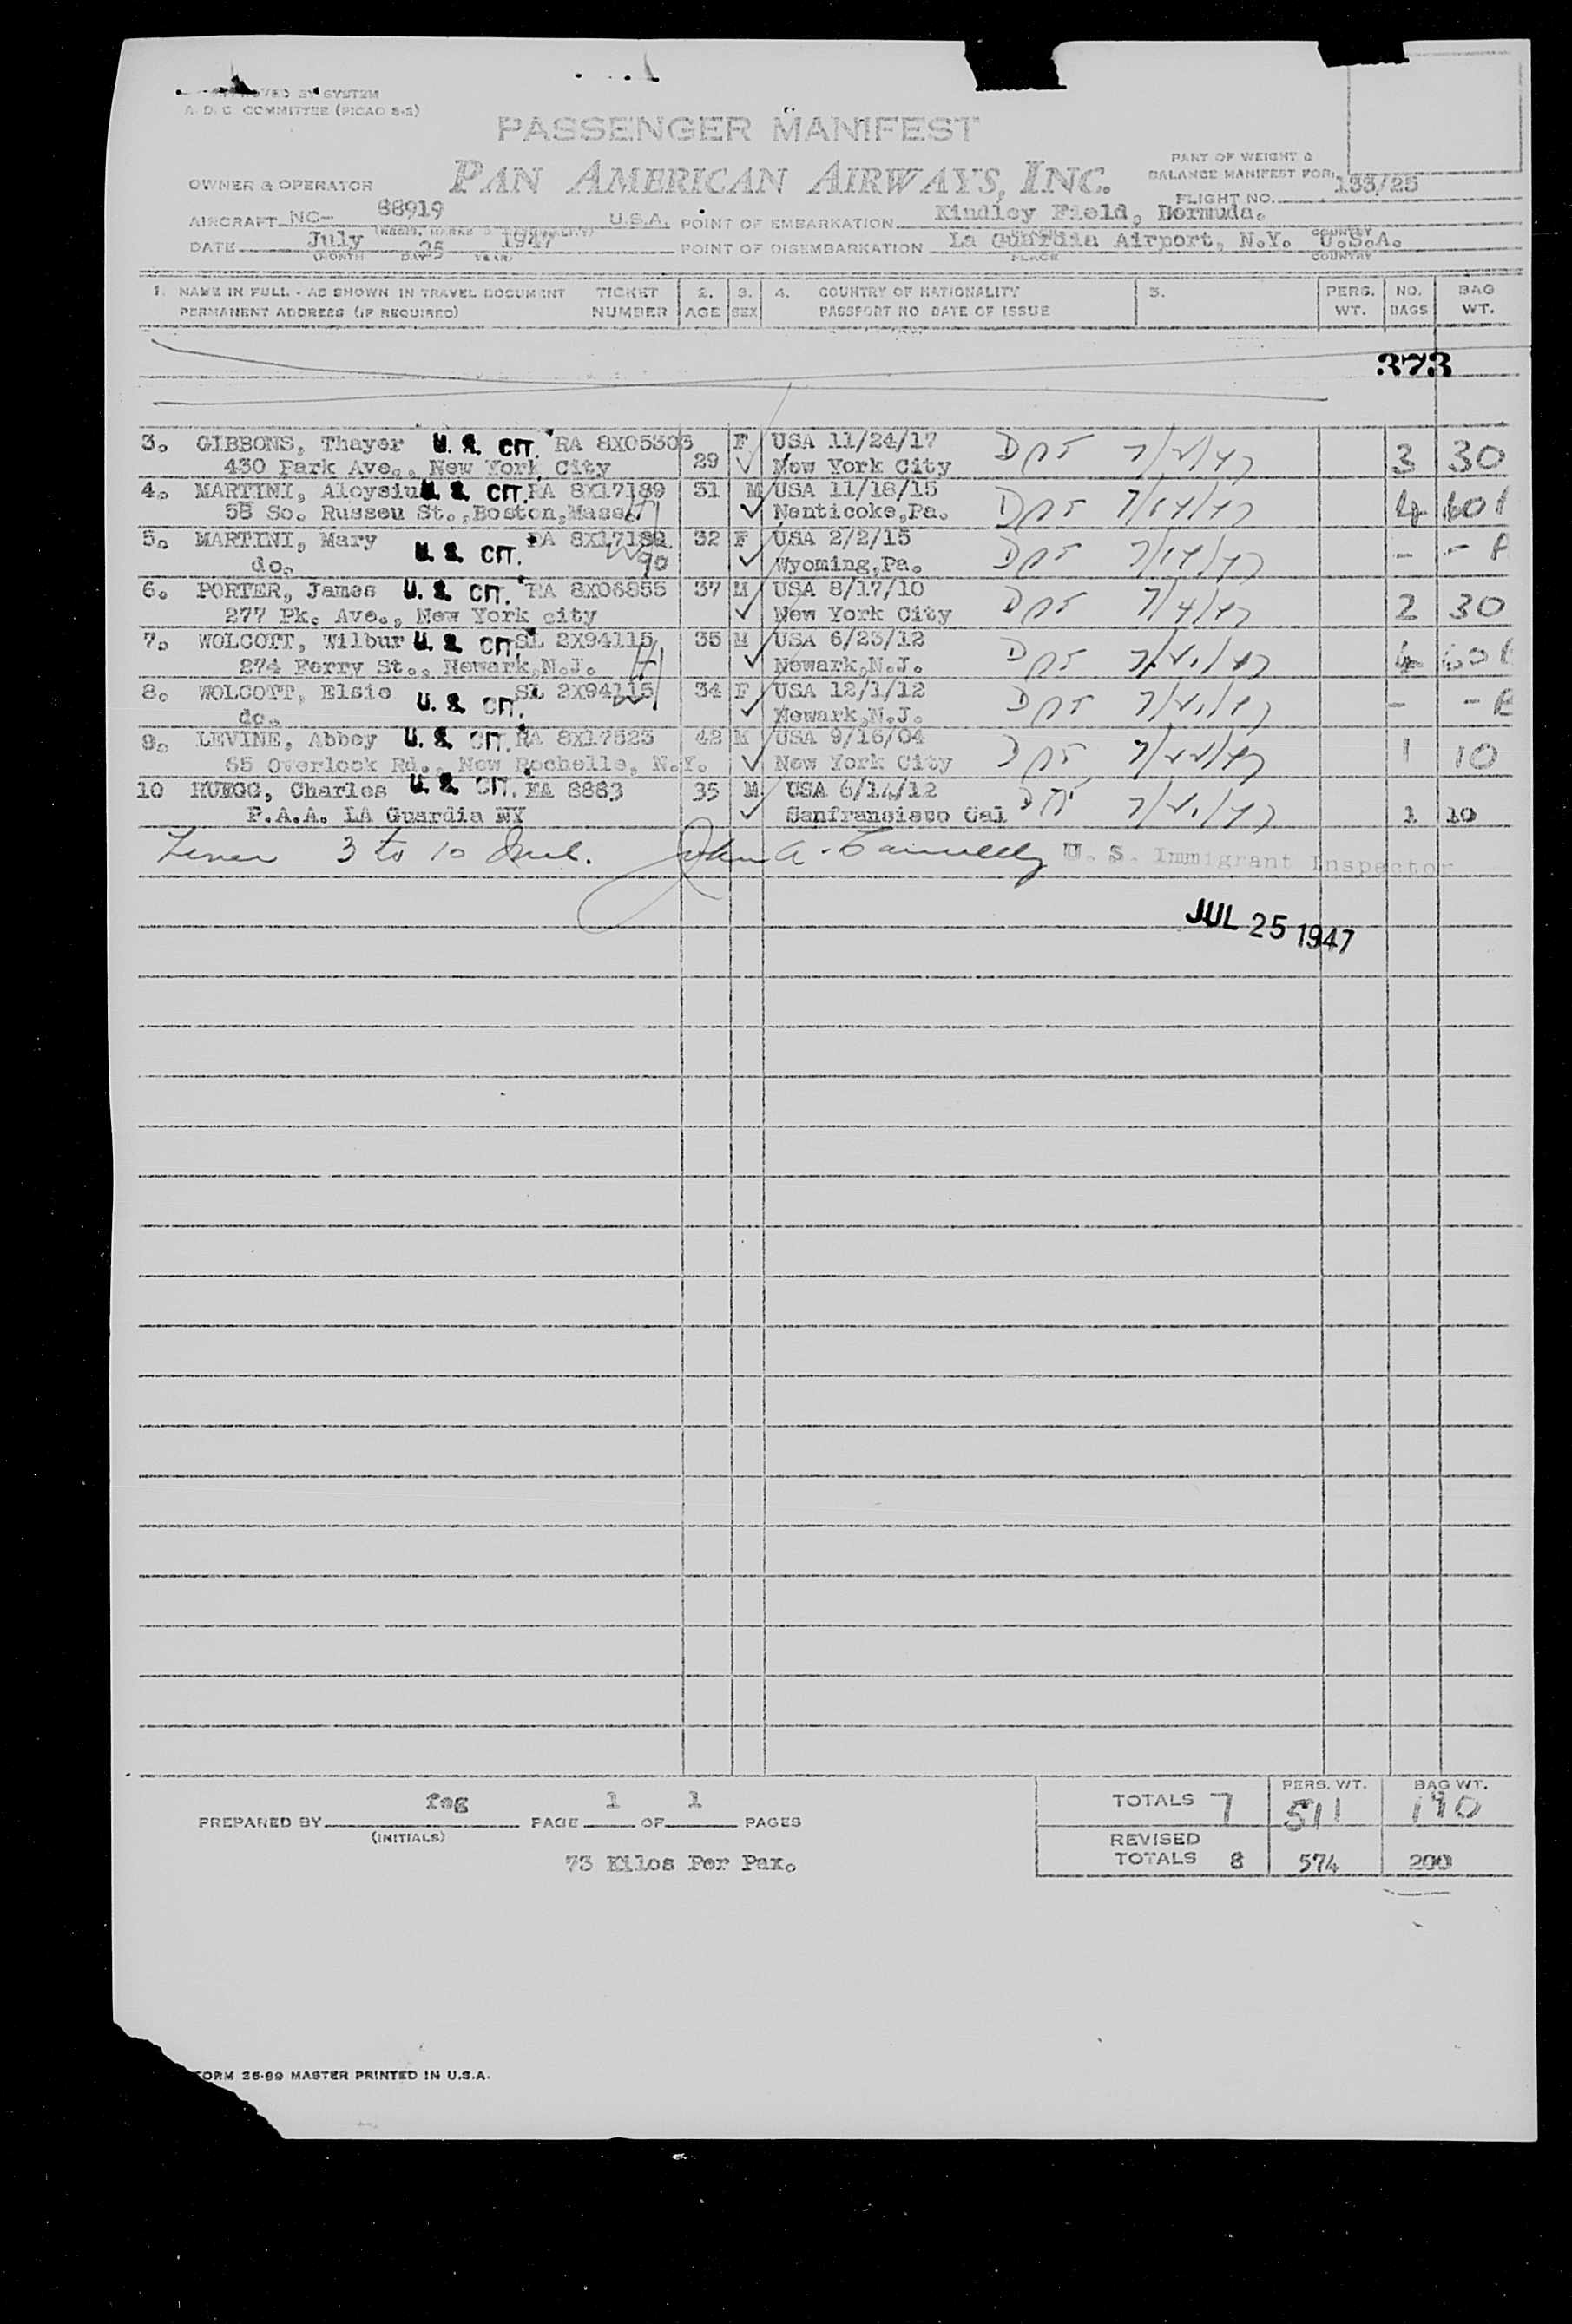 APPROVED BY SYSTEM
A. D. C. COMMITTEE (PICAO 8-2)
PASSENGER MANIFEST
PAN AMERICAN AIRWAYS, INC.
PART OF WEIGHT &
BALANCE MANIFEST FOR:
FLIGHT NO. 133/25
OWNER & OPERATOR
AIRCRAFT NC- 88919 U.S.A. POINT OF EMBARKATION Kindley Field, Bermuda.
DATE July 25 1947 POINT OF DISEMBARKATION La Guardia Airport, N.Y. U.S.A.
(MONTH DAY YEAR) PLACE COUNTRY
1. NAME IN FULL - AS SHOWN IN TRAVEL DOCUMENT TICKET 2. 3. 4. COUNTRY OF NATIONALITY 5. PERS. NO. BAG
PERMANENT ADDRESS (IF REQUIRED) NUMBER AGE SEX PASSPORT NO DATE OF ISSUE WT. BAGS WT.
373
3. GIBBONS, Thayer U. S. CIT. RA 8X05303 F USA 11/24/17
430 Park Ave., New York City 29 New York City 3 30
4. MARTINI, Aloysiu U. S. CIT. RA 8X17189 31 M USA 11/18/15
58 So. Russeu St., Boston, Mass. Nanticoke, Pa. 4 60
5. MARTINI, Mary U. S. CIT. RA 8X17189 32 F USA 2/2/15
do. 90 Wyoming, Pa. - -
6. PORTER, James U. S. CIT. RA 8X06855 37 M USA 8/17/10
277 Pk. Ave., New York city New York City 2 30
7. WOLCOTT, Wilbur U. S. CIT. SL 2X94115 35 M USA 6/23/12
274 Ferry St., Newark, N.J. Newark, N.J. 4 60
8. WOLCOTT, Elsie U. S. CIT. SL 2X94115 34 F USA 12/1/12
do. Newark, N.J. - -
9. LEVINE, Abbey U. S. CIT. RA 8X17523 42 M USA 9/16/04
65 Overlook Rd., New Rochelle, N.Y. New York City 1 10
10 RUEGG, Charles U. S. CIT. EA 8883 35 M USA 6/14/12
P.A.A. LA Guardia NY Sanfransisco Cal 1 10
3 to 10 Incl. John A. U. S. Immigrant Inspector
JUL 25 1947
TOTALS 7 PERS. WT. 511 BAG WT. 190
PREPARED BY feg PAGE 1 OF 1 PAGES
(INITIALS)
REVISED
TOTALS 8 574 200
73 Kilos Per Pax.
FORM 36-89 MASTER PRINTED IN U.S.A.